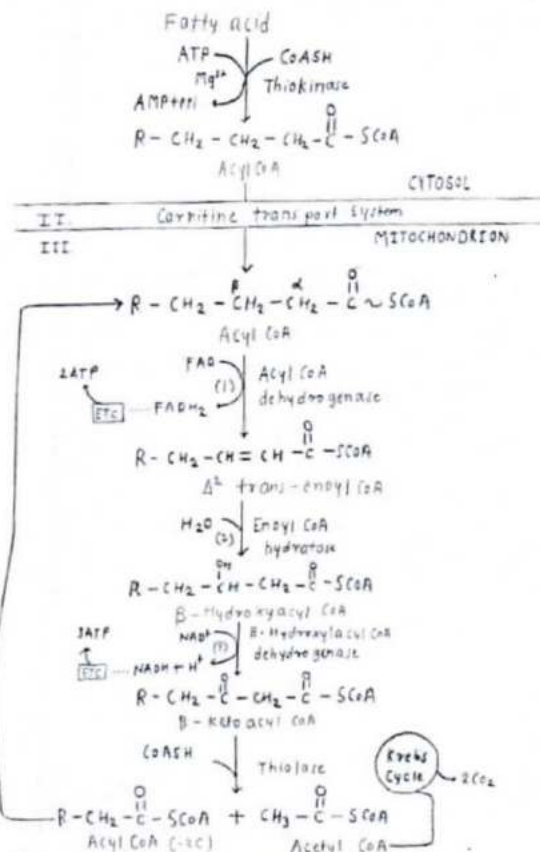 Fatty acid
ATP CoASH
Mg²⁺ Thiokinase
AMP+PPi
O
R - CH₂ - CH₂ - CH₂ - C - SCoA
Acyl CoA
CYTOSOL
II. Carnitine transport system
III MITOCHONDRION
β α O
R - CH₂ - CH₂ - CH₂ - C ~ SCoA
Acyl CoA
2ATP FAD (1) Acyl CoA
ETC FADH₂ dehydrogenase
O
R - CH₂ - CH = CH - C - SCoA
Δ² trans-enoyl CoA
H₂O (2) Enoyl CoA
hydratase
OH O
R - CH₂ - CH - CH₂ - C - SCoA
β-Hydroxyacyl CoA
3ATP NAD⁺ (3) β-Hydroxylacyl CoA
ETC NADH + H⁺ dehydrogenase
O O
R - CH₂ - C - CH₂ - C - SCoA
β-Ketoacyl CoA
CoASH Thiolase
Krebs
Cycle 2CO₂
O O
R - CH₂ - C - SCoA + CH₃ - C - SCoA
Acyl CoA (-2C) Acetyl CoA